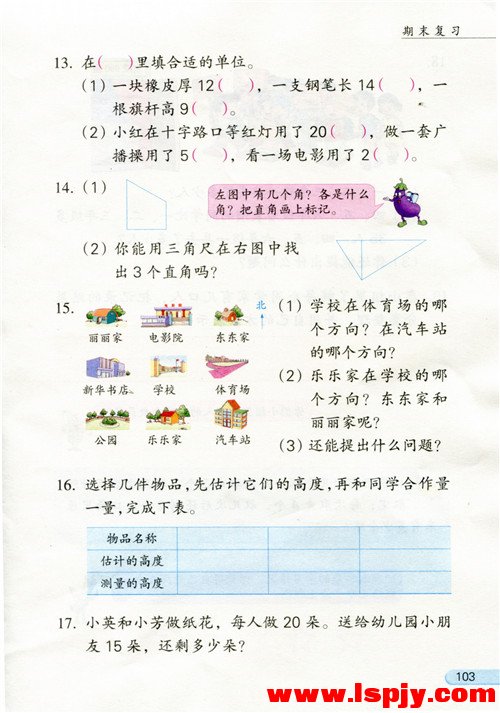 期末复习
13. 在(　)里填合适的单位。
(1) 一块橡皮厚12(　)，一支钢笔长14(　)，一
根旗杆高9(　)。
(2) 小红在十字路口等红灯用了20(　)，做一套广
播操用了5(　)，看一场电影用了2(　)。
14. (1)
左图中有几个角？各是什么
角？把直角画上标记。
(2) 你能用三角尺在右图中找
出3个直角吗？
15.
北
丽丽家 电影院 东东家
新华书店 学校 体育场
公园 乐乐家 汽车站
(1) 学校在体育场的哪
个方向？在汽车站
的哪个方向？
(2) 乐乐家在学校的哪
个方向？东东家和
丽丽家呢？
(3) 还能提出什么问题？
16. 选择几件物品，先估计它们的高度，再和同学合作量
一量，完成下表。
物品名称
估计的高度
测量的高度
17. 小英和小芳做纸花，每人做20朵。送给幼儿园小朋
友15朵，还剩多少朵？
103
www.lspjy.com